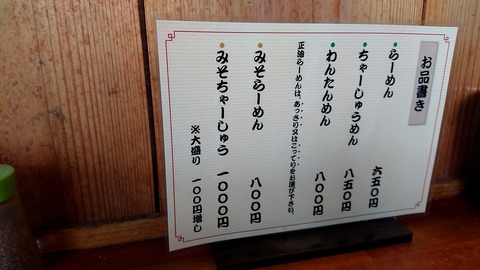 お品書き
らーめん 六五〇円
ちゃーしゅうめん 八五〇円
わんたんめん 八〇〇円
正油らーめんは、あっさり又はこってりをお選び下さい。
みそらーめん 八〇〇円
みそちゃーしゅう 一〇〇〇円
※大盛り 一〇〇円増し